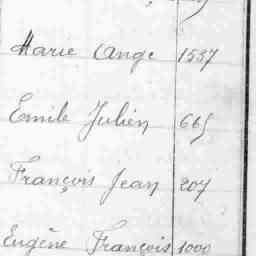 Marie Ange 1537
Emile Julien 665
François Jean 207
Eugène François 1000